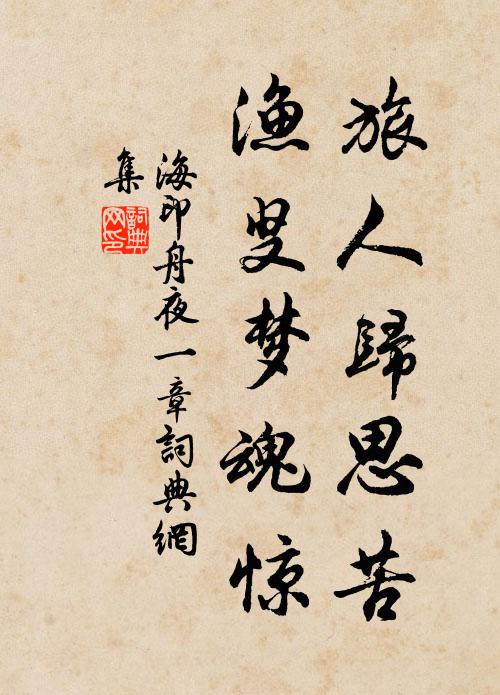 旅人歸思苦
渔叟梦魂惊
海印舟夜一章詞典網
集
詞典网印